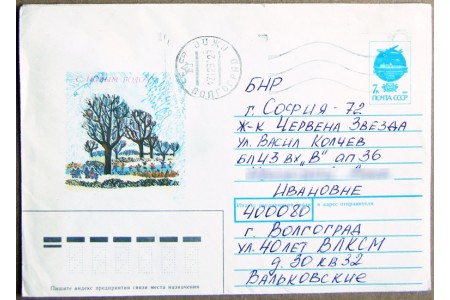 ВОЛГОГРАД
С НОВЫМ ГОДОМ
7к
ПОЧТА СССР
БНР
г. СОФИЯ - 72
Ж-К ЧЕРВЕНА ЗВЕЗДА
ул. ВАСИЛ КОЛЧЕВ
БЛ 43 ВХ „В" АП 36
ИВАНОВНЕ
и адрес отправителя
400080
г. ВОЛГОГРАД
УЛ. 40 ЛЕТ ВЛКСМ
Д. 30 КВ 32
ВАЛЬКОВСКИЕ
Пишите индекс предприятия связи места назначения